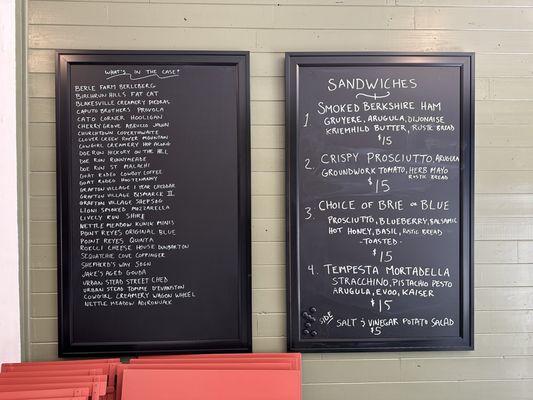 WHAT'S IN THE CASE?
BERLE FARM BERLEBERG
BIRCHRUN HILLS FAT CAT
BLAKESVILLE CREAMERY PIEDRAS
CAPUTO BROTHERS PROVOLA
CATO CORNER HOOLIGAN
CHERRY GROVE ABRUZZE JAWN
CHURCHTOWN COPPERTHWAITE
CLOVER CREEK RIVER MOUNTAIN
COWGIRL CREAMERY HOP ALONG
DOE RUN HICKORY ON THE HILL
DOE RUN RUNNYMEADE
DOE RUN ST MALACHI
GOAT RODEO COWBOY COFFEE
GOAT RODEO HOOTENANNY
GRAFTON VILLAGE 1 YEAR CHEDDAR
GRAFTON VILLAGE BISMARCK
GRAFTON VILLAGE SHEPSOG
LIONI SMOKED MOZZARELLA
LIVELY RUN SHIRE
NETTLE MEADOW KUNIK MINIS
POINT REYES ORIGINAL BLUE
POINT REYES QUINTA
ROELLI CHEESE HOUSE DUNBARTON
SEQUATCHIE COVE COPPINGER
SHEPHERD'S WAY SOGN
JAKE'S AGED GOUDA
URBAN STEAD STREET CHED
URBAN STEAD TOMME D'EVANSTON
COWGIRL CREAMERY WAGON WHEEL
NETTLE MEADOW ADIRONJACK
SANDWICHES
1. SMOKED BERKSHIRE HAM
GRUYERE, ARUGULA, DIJONAISE
KRIEMHILD BUTTER, RUSTIC BREAD
$15
2. CRISPY PROSCIUTTO, ARUGULA
GROUNDWORK TOMATO, HERB MAYO
RUSTIC BREAD
$15
3. CHOICE OF BRIE OR BLUE
PROSCIUTTO, BLUEBERRY, BALSAMIC
HOT HONEY, BASIL, RUSTIC BREAD
-TOASTED-
$15
4. TEMPESTA MORTADELLA
STRACCHINO, PISTACHIO PESTO
ARUGULA, EVOO, KAISER
$15
SIDE SALT & VINEGAR POTATO SALAD
$5